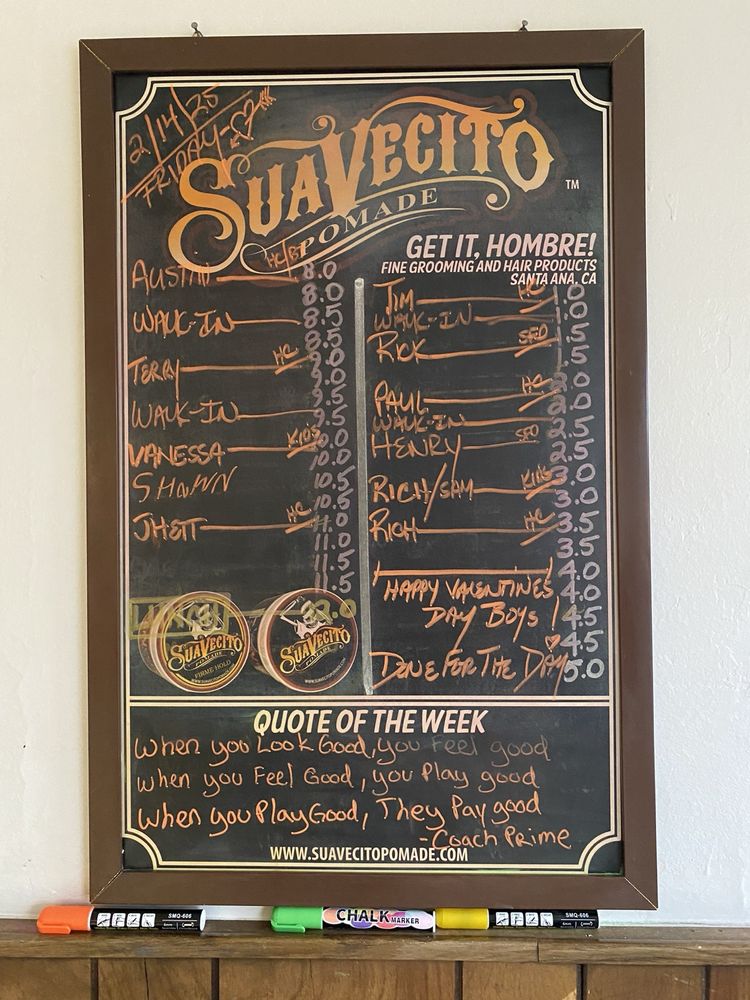 2/14/25
FRIDAY-
SUAVECITO
POMADE
TM
GET IT, HOMBRE!
FINE GROOMING AND HAIR PRODUCTS
SANTA ANA, CA
AUSTIN HC/BT 8.0
8.0
WALK-IN 8.5
8.5
TERRY HC 9.0
9.0
WALK-IN 9.5
9.5
VANESSA KIDS 10.0
10.0
SHAWN 10.5
10.5
JHETT HC 11.0
11.0
11.5
11.5
LUNCH 12.0
JIM HC 1.0
WALK-IN 1.0
RICK SFO 1.5
1.5
PAUL HC 2.0
WALK-IN 2.0
HENRY SFO 2.5
2.5
RICH/SAM KIDS 3.0
3.0
RICH HC 3.5
3.5
4.0
HAPPY VALENTINES 4.0
DAY BOYS! 4.5
4.5
DONE FOR THE DAY 5.0
SUAVECITO
POMADE
FIRME HOLD
SUAVECITO
POMADE
QUOTE OF THE WEEK
When you Look Good, you Feel good
when you Feel Good, you Play good
When you Play Good, They Pay good
-Coach Prime
WWW.SUAVECITOPOMADE.COM
SMQ-606
CHALK MARKER
SMQ-606